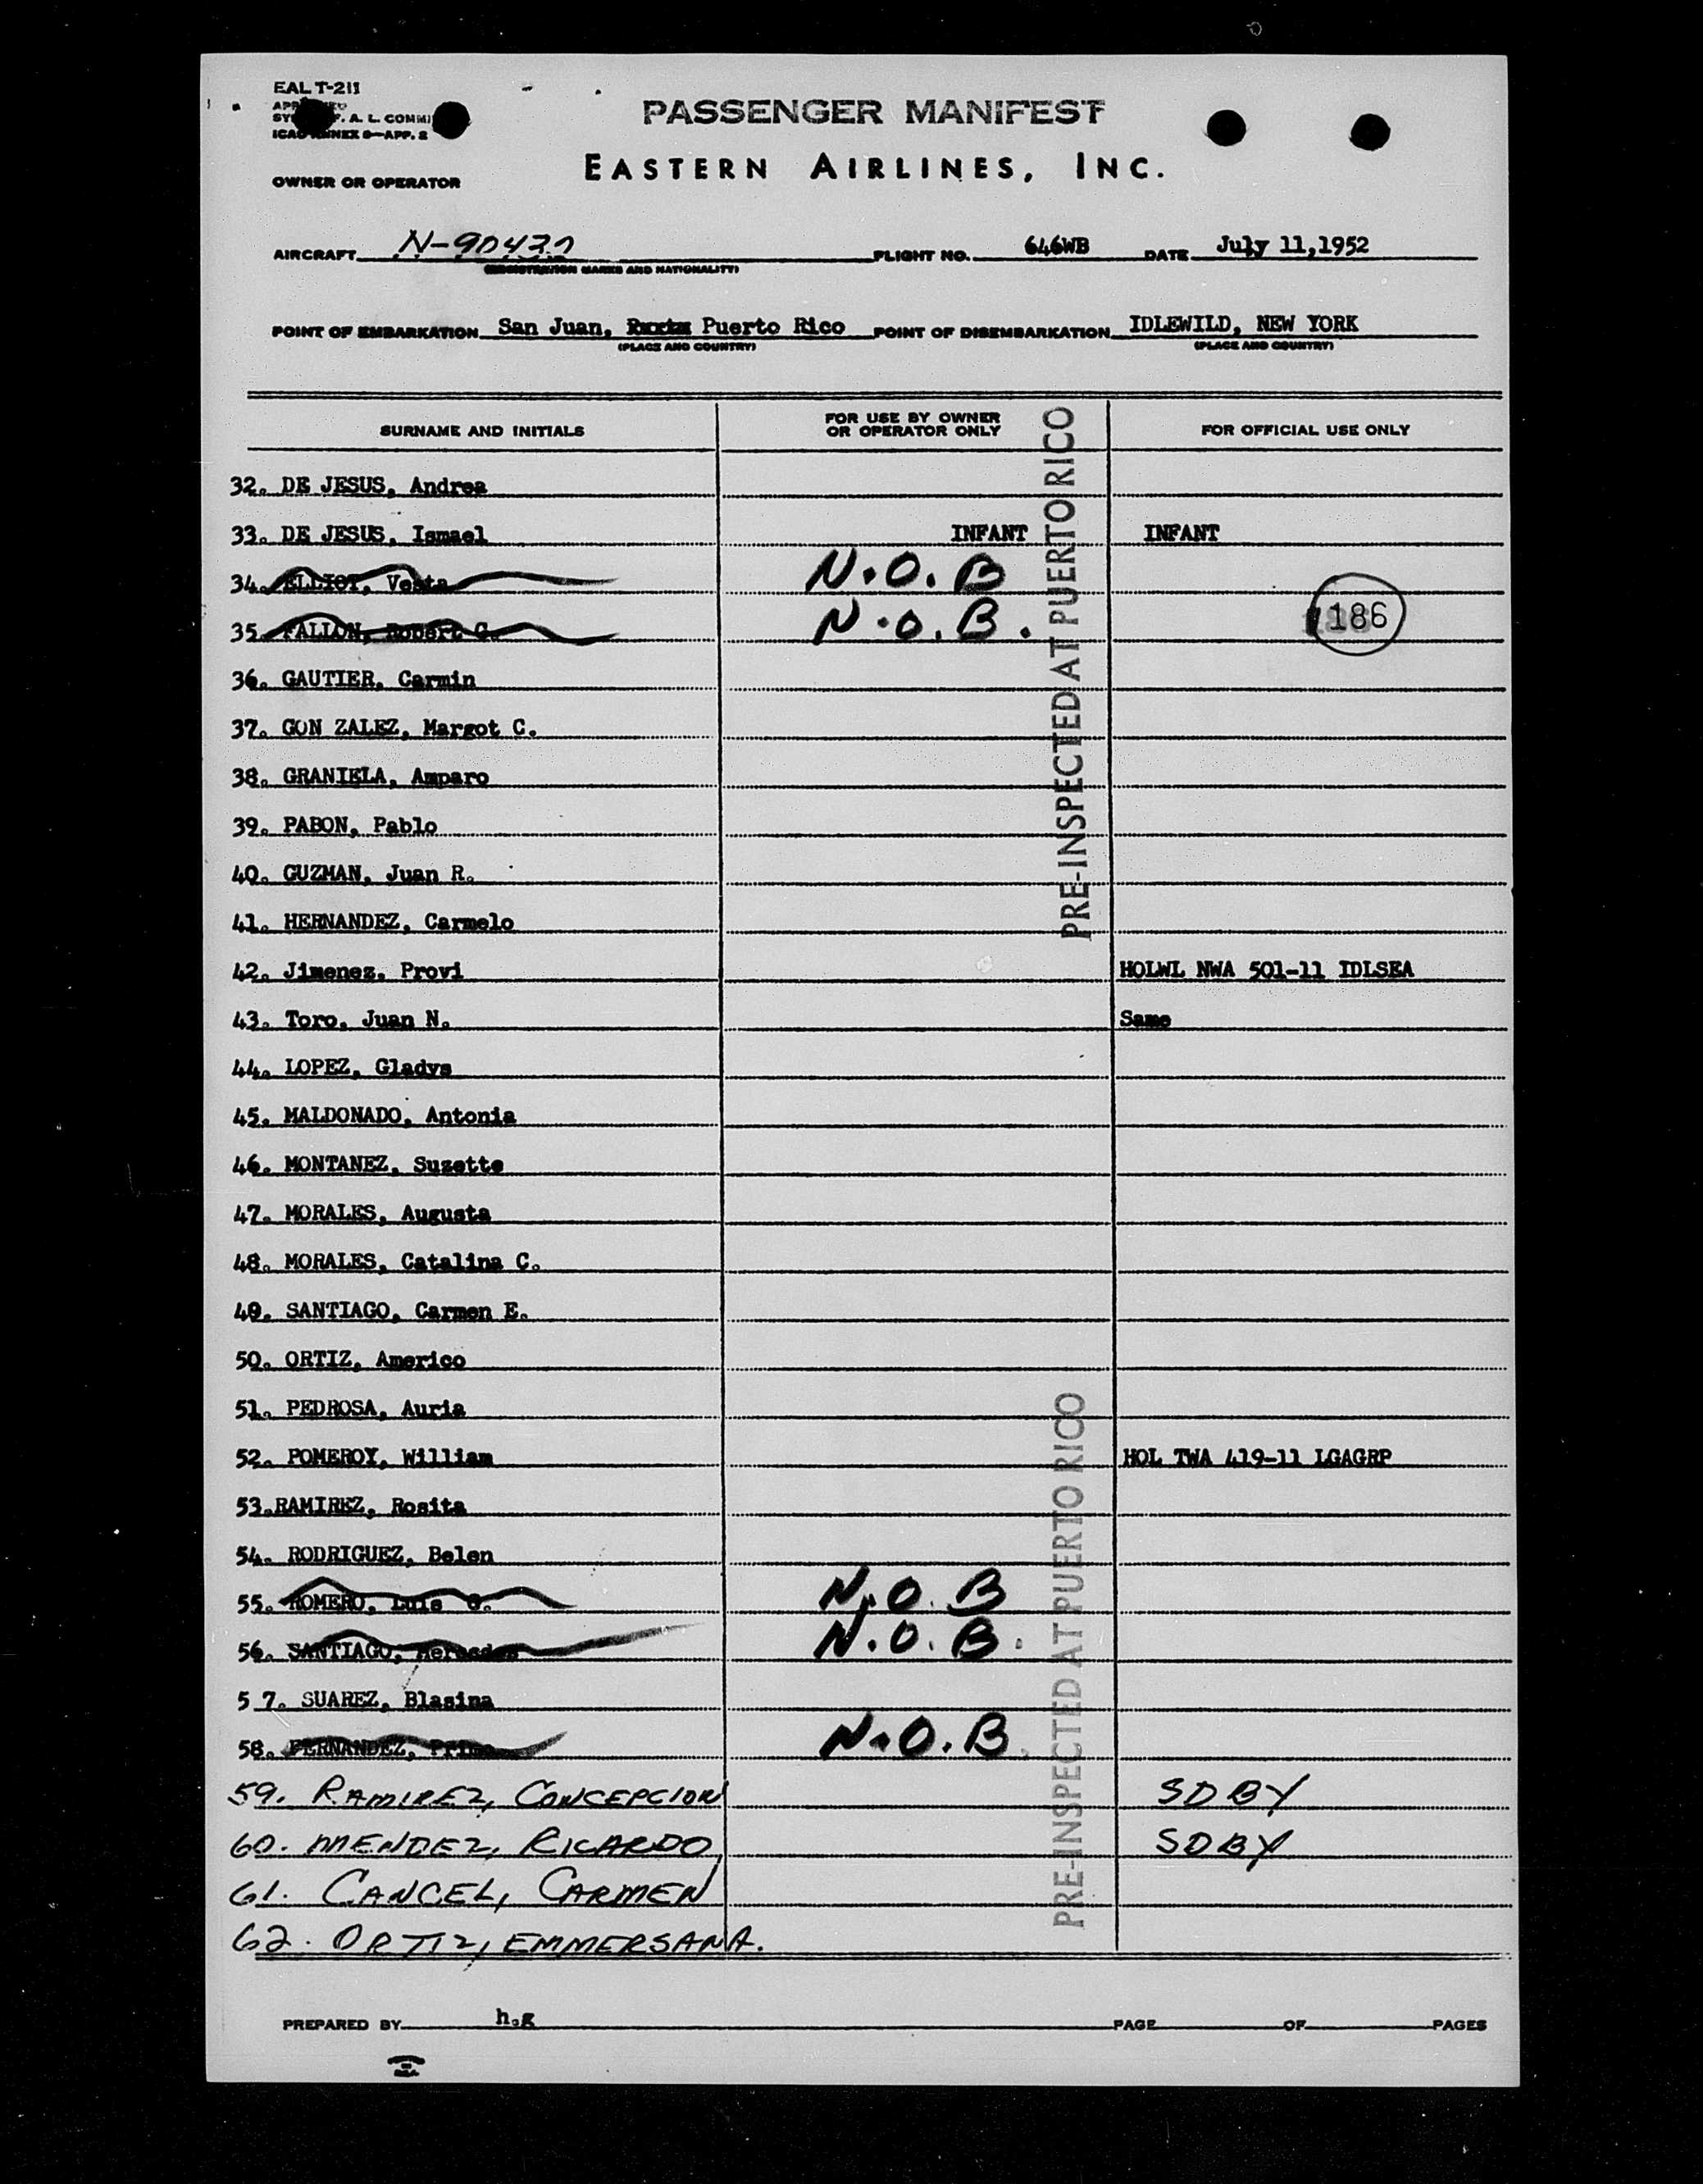 EAL T-211
PASSENGER MANIFEST
F. A. L. COMMI
ICAO ANNEX 9—APP. 2
EASTERN AIRLINES, INC.
OWNER OR OPERATOR
AIRCRAFT N-90430 FLIGHT NO. 646WB DATE July 11,1952
(REGISTRATION MARKS AND NATIONALITY)
POINT OF EMBARKATION San Juan, Puerto Rico POINT OF DISEMBARKATION IDLEWILD, NEW YORK
(PLACE AND COUNTRY) (PLACE AND COUNTRY)
SURNAME AND INITIALS FOR USE BY OWNER OR OPERATOR ONLY FOR OFFICIAL USE ONLY
32. DE JESUS, Andrea
33. DE JESUS, Ismael INFANT INFANT
34. ELLIOT, Vesta N.O.B
35. FALLON, Robert G. N.O.B. 186
36. GAUTIER, Carmin
37. GON ZALEZ, Margot C.
38. GRANIELA, Amparo
39. PABON, Pablo
40. GUZMAN, Juan R.
41. HERNANDEZ, Carmelo
PRE-INSPECTED AT PUERTO RICO
42. Jimenez, Provi HOLWL NWA 501-11 IDLSEA
43. Toro, Juan N. Same
44. LOPEZ, Gladys
45. MALDONADO, Antonia
46. MONTANEZ, Suzette
47. MORALES, Augusta
48. MORALES, Catalina C.
49. SANTIAGO, Carmen E.
50. ORTIZ, Americo
51. PEDROSA, Auria
52. POMEROY, William HOL TWA 419-11 LGAGRP
53.RAMIREZ, Rosita
54. RODRIGUEZ, Belen
55. ROMERO, Luis G. N.O.B
56. SANTIAGO, Mercedes N.O.B.
5 7. SUAREZ, Blasina
58. FERNANDEZ, N.O.B.
59. RAMIREZ, CONCEPCION SDBY
60. MENDEZ, RICARDO SDBY
61. CANCEL, CARMEN
62. ORTIZ, EMMERSANA.
PRE-INSPECTED AT PUERTO RICO
PREPARED BY h.g PAGE OF PAGES